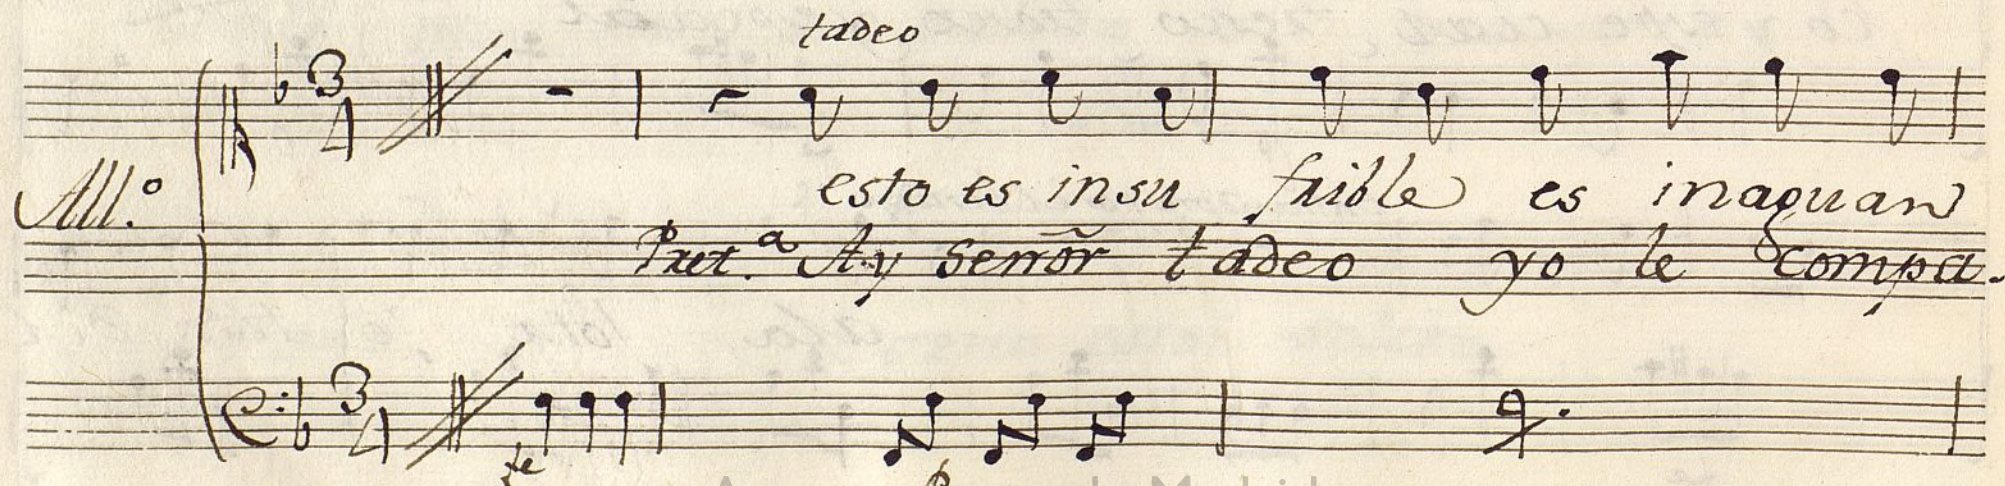 tadeo
All.º
esto es insu frible es inaguan
Pret.ª Ay señor tadeo yo le compa
fe
p